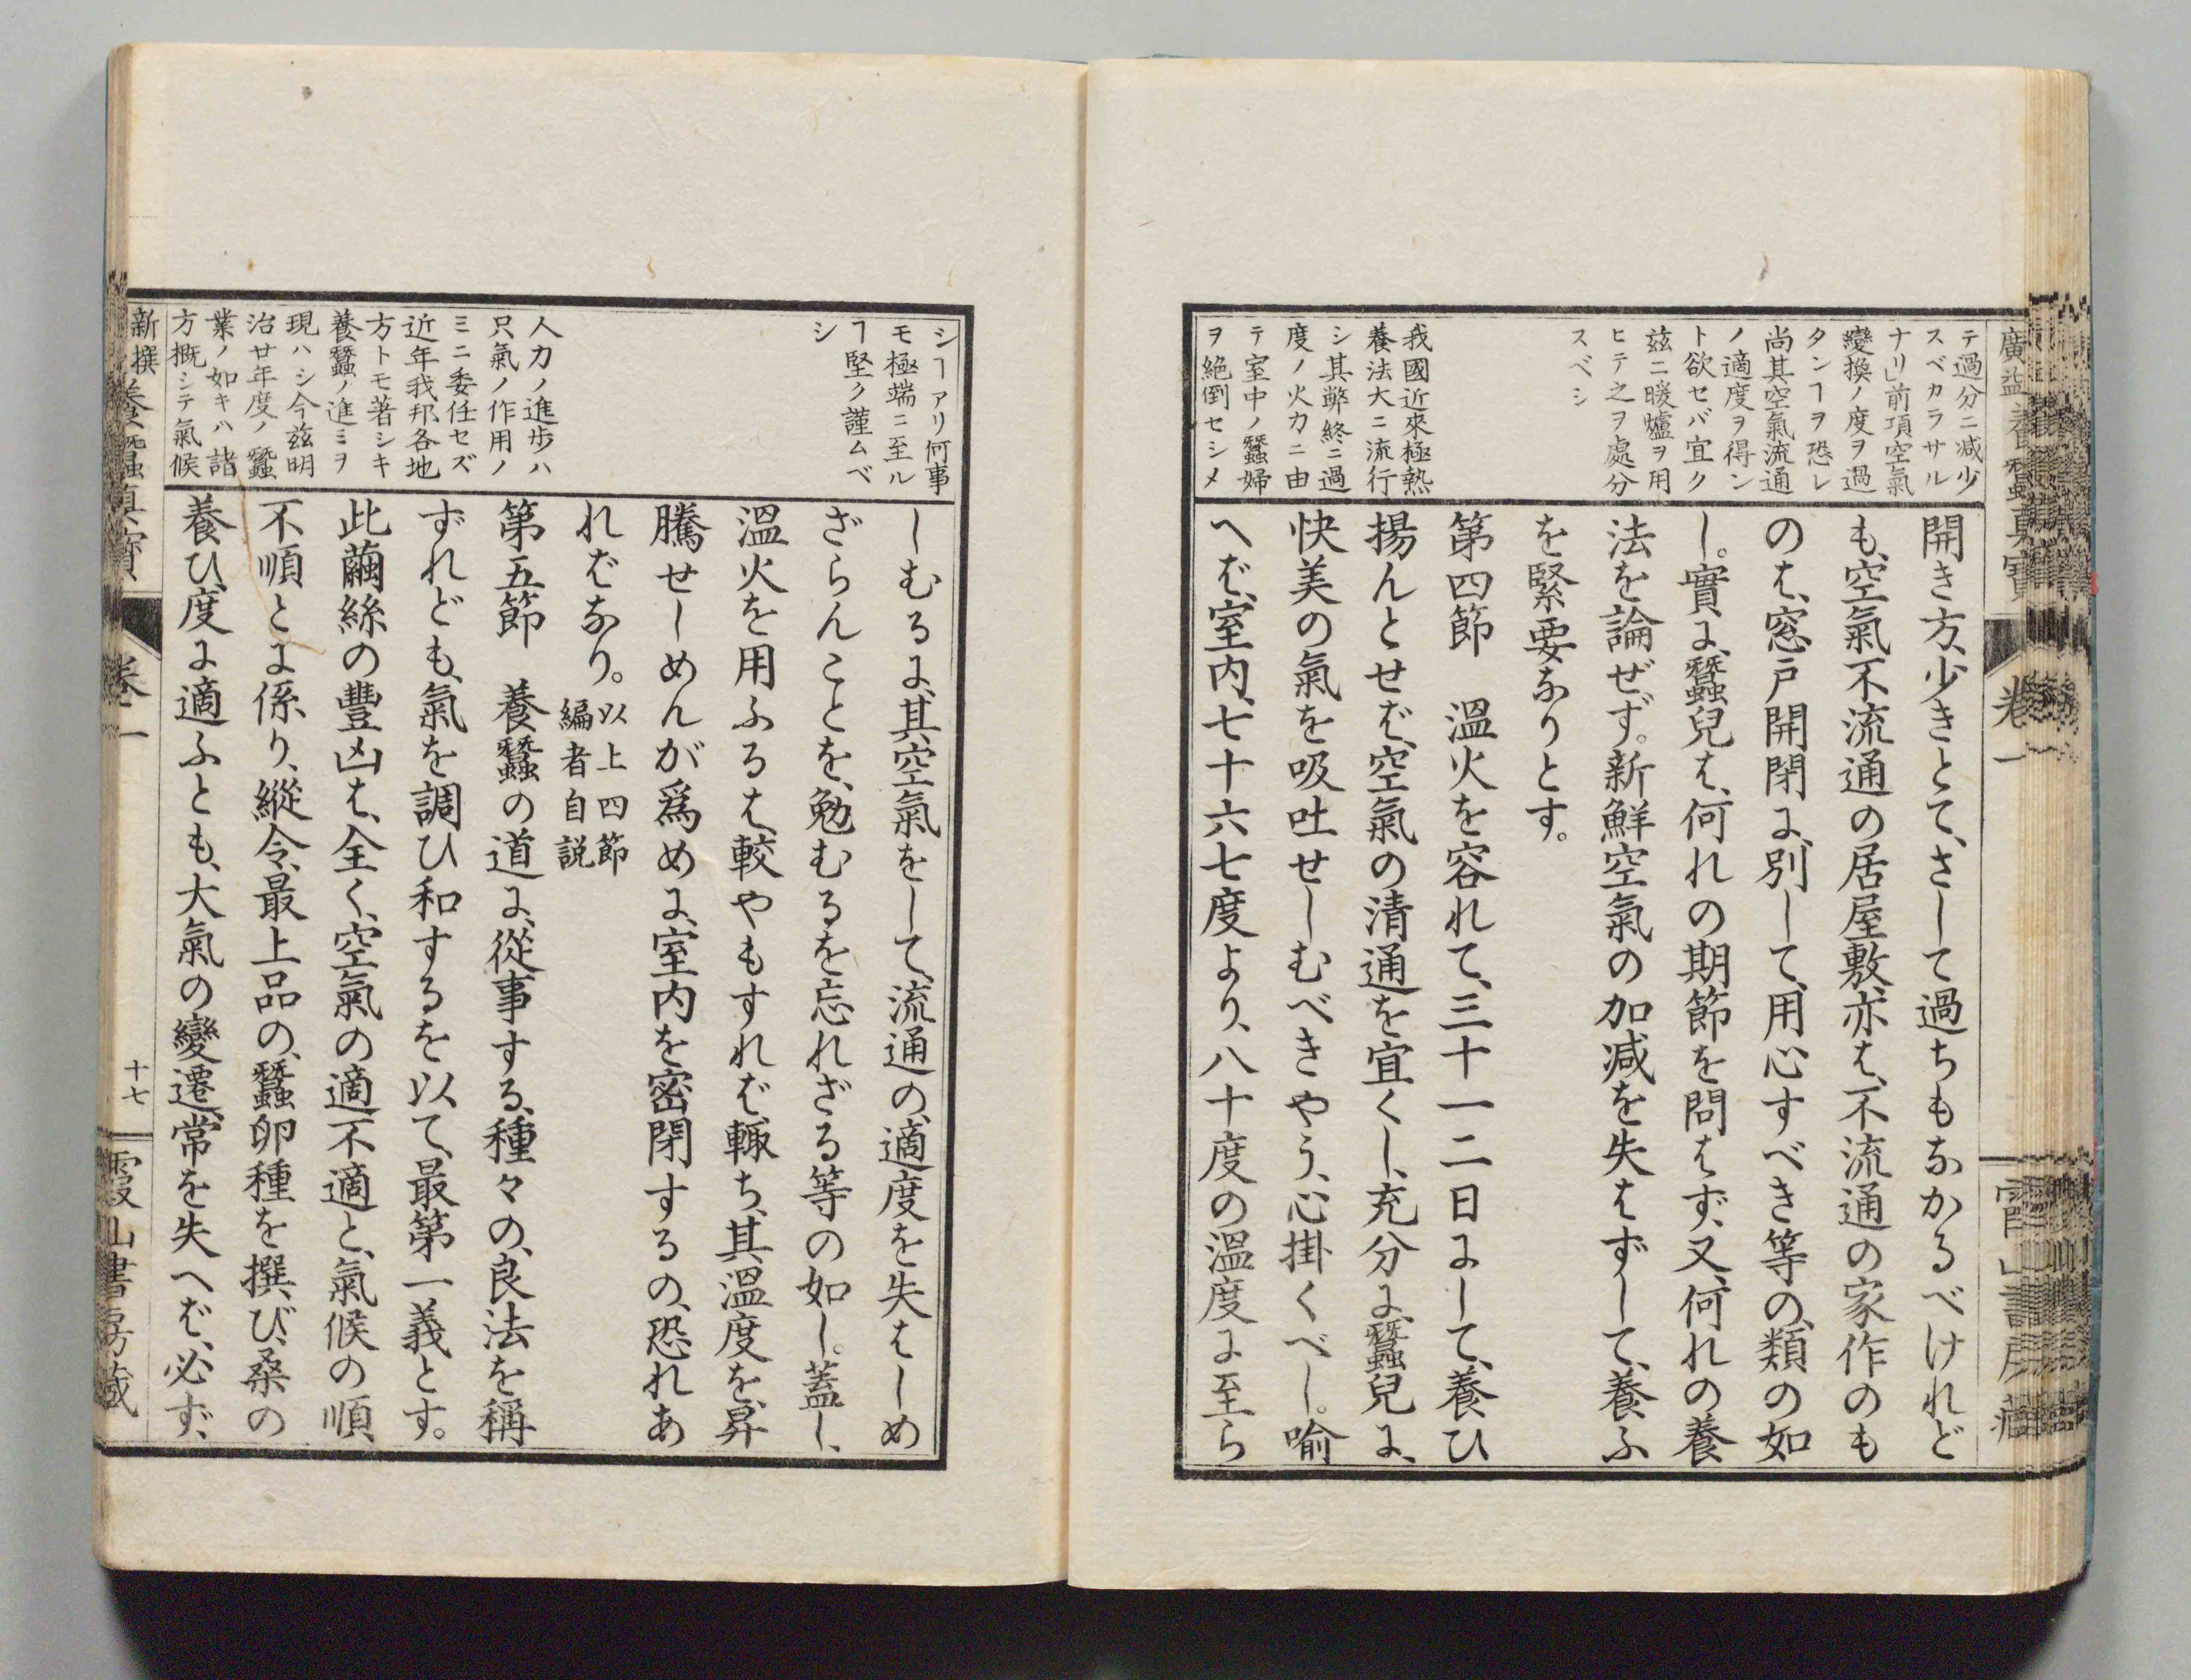 廣益養蠶眞寶　卷一　霞山書房藏
テ過分ニ減少
スベカラサル
ナリ」前項空氣
變換ノ度ヲ過
タンヿヲ恐レ
尚其空氣流通
ノ適度ヲ得ン
ト欲セバ宜ク
茲ニ暖爐ヲ用
ヒテ之ヲ處分
スベシ
我國近來極熱
養法大ニ流行
シ其弊終ニ過
度ノ火力ニ由
テ室中ノ蠶婦
ヲ絶倒セシメ
開き方、少きとて、さして過ちもなかるべけれど
も、空氣不流通の居屋敷、亦は、不流通の家作のも
のは、窓戸開閉に、別して、用心すべき等の、類の如
し。實に、蠶兒は、何れの期節を問はず、又、何れの養
法を論ぜず。新鮮空氣の加減を失はずして、養ふ
を緊要なりとす。
第四節　溫火を容れて、三十一二日にして、養ひ
揚んとせば、空氣の清通を宜くし、充分に、蠶兒に、
快美の氣を吸吐せしむべきやう、心掛くべし。喻
へば、室内、七十六七度より、八十度の溫度に至ら
シヿアリ何事
モ極端ニ至ル
ヿ堅ク謹ムベ
シ
人力ノ進歩ハ
只氣ノ作用ノ
ミニ委任セズ
近年我邦各地
方トモ著シキ
養蠶ノ進ミヲ
現ハシ今茲明
治廿年度ノ蠶
業ノ如キハ諸
方概シテ氣候
しむるに、其空氣をして、流通の、適度を失はしめ
ざらんことを、勉むるを忘れざる等の如し。蓋し、
溫火を用ふるは、較やもすれば、輙ち、其溫度を、昇
騰せしめんが爲めに、室内を密閉するの、恐れあ
ればなり。以上四節
編者自説
第五節　養蠶の道に、從事する、種々の、良法を稱
ずれども、氣を調ひ和するを以て、最第一義とす。
此繭絲の豐凶は、全く、空氣の適不適と、氣候の順
不順とに係り、縱令、最上品の、蠶卵種を撰び、桑の
養ひ、度に適ふとも、大氣の變遷、常を失へば、必ず、
新撰養蠶眞寶　卷一　十七　霞山書房藏